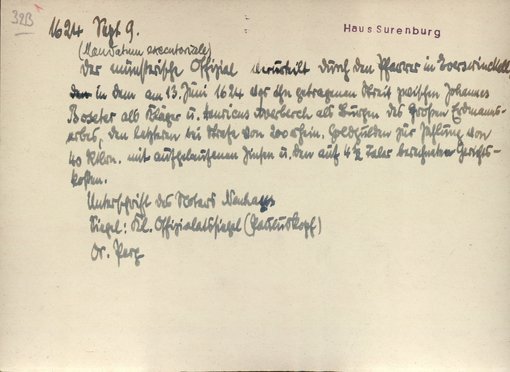 32B
1624 Sept 9.
Haus Surenburg
(Mandatum executoriale)
Der münsterische Offizial verurteilt durch den Pfarrer in Everswinckell
in dem am 13. Juni 1624 vor ihn getragenen Streit zwischen Johannes
Boseter als Kläger u. Henricus Averberch als Bürgen des Großen Erdmans-
erbes, den letzteren bei Strafe von 200 rhein. Goldgulden zur Zahlung von
40 Rtlrn. mit aufgelaufenen Zinsen u. den auf 4½ Taler berechneten Gerichts-
kosten.
Unterschrift des Notars Neuhaus
Siegel: Kl. Offizialatssiegel (Pauluskopf)
Or. Perg